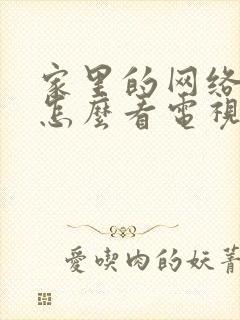 家里的网络
怎麼看電視
愛喫肉的妖菁